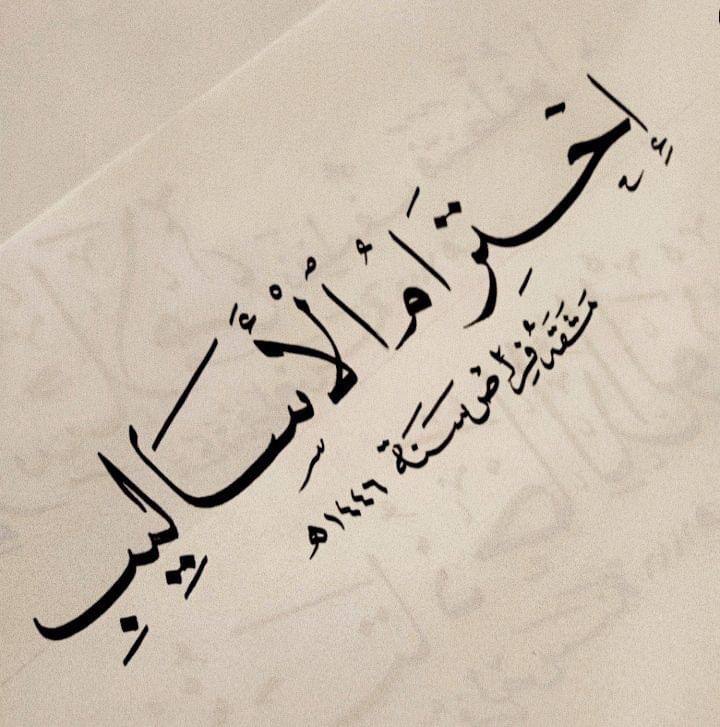 إِحْتِرَامُ الْأَسَالِيبِ
مَشَقَهُ فِرَاض سَنَة ١٤٤٦ه